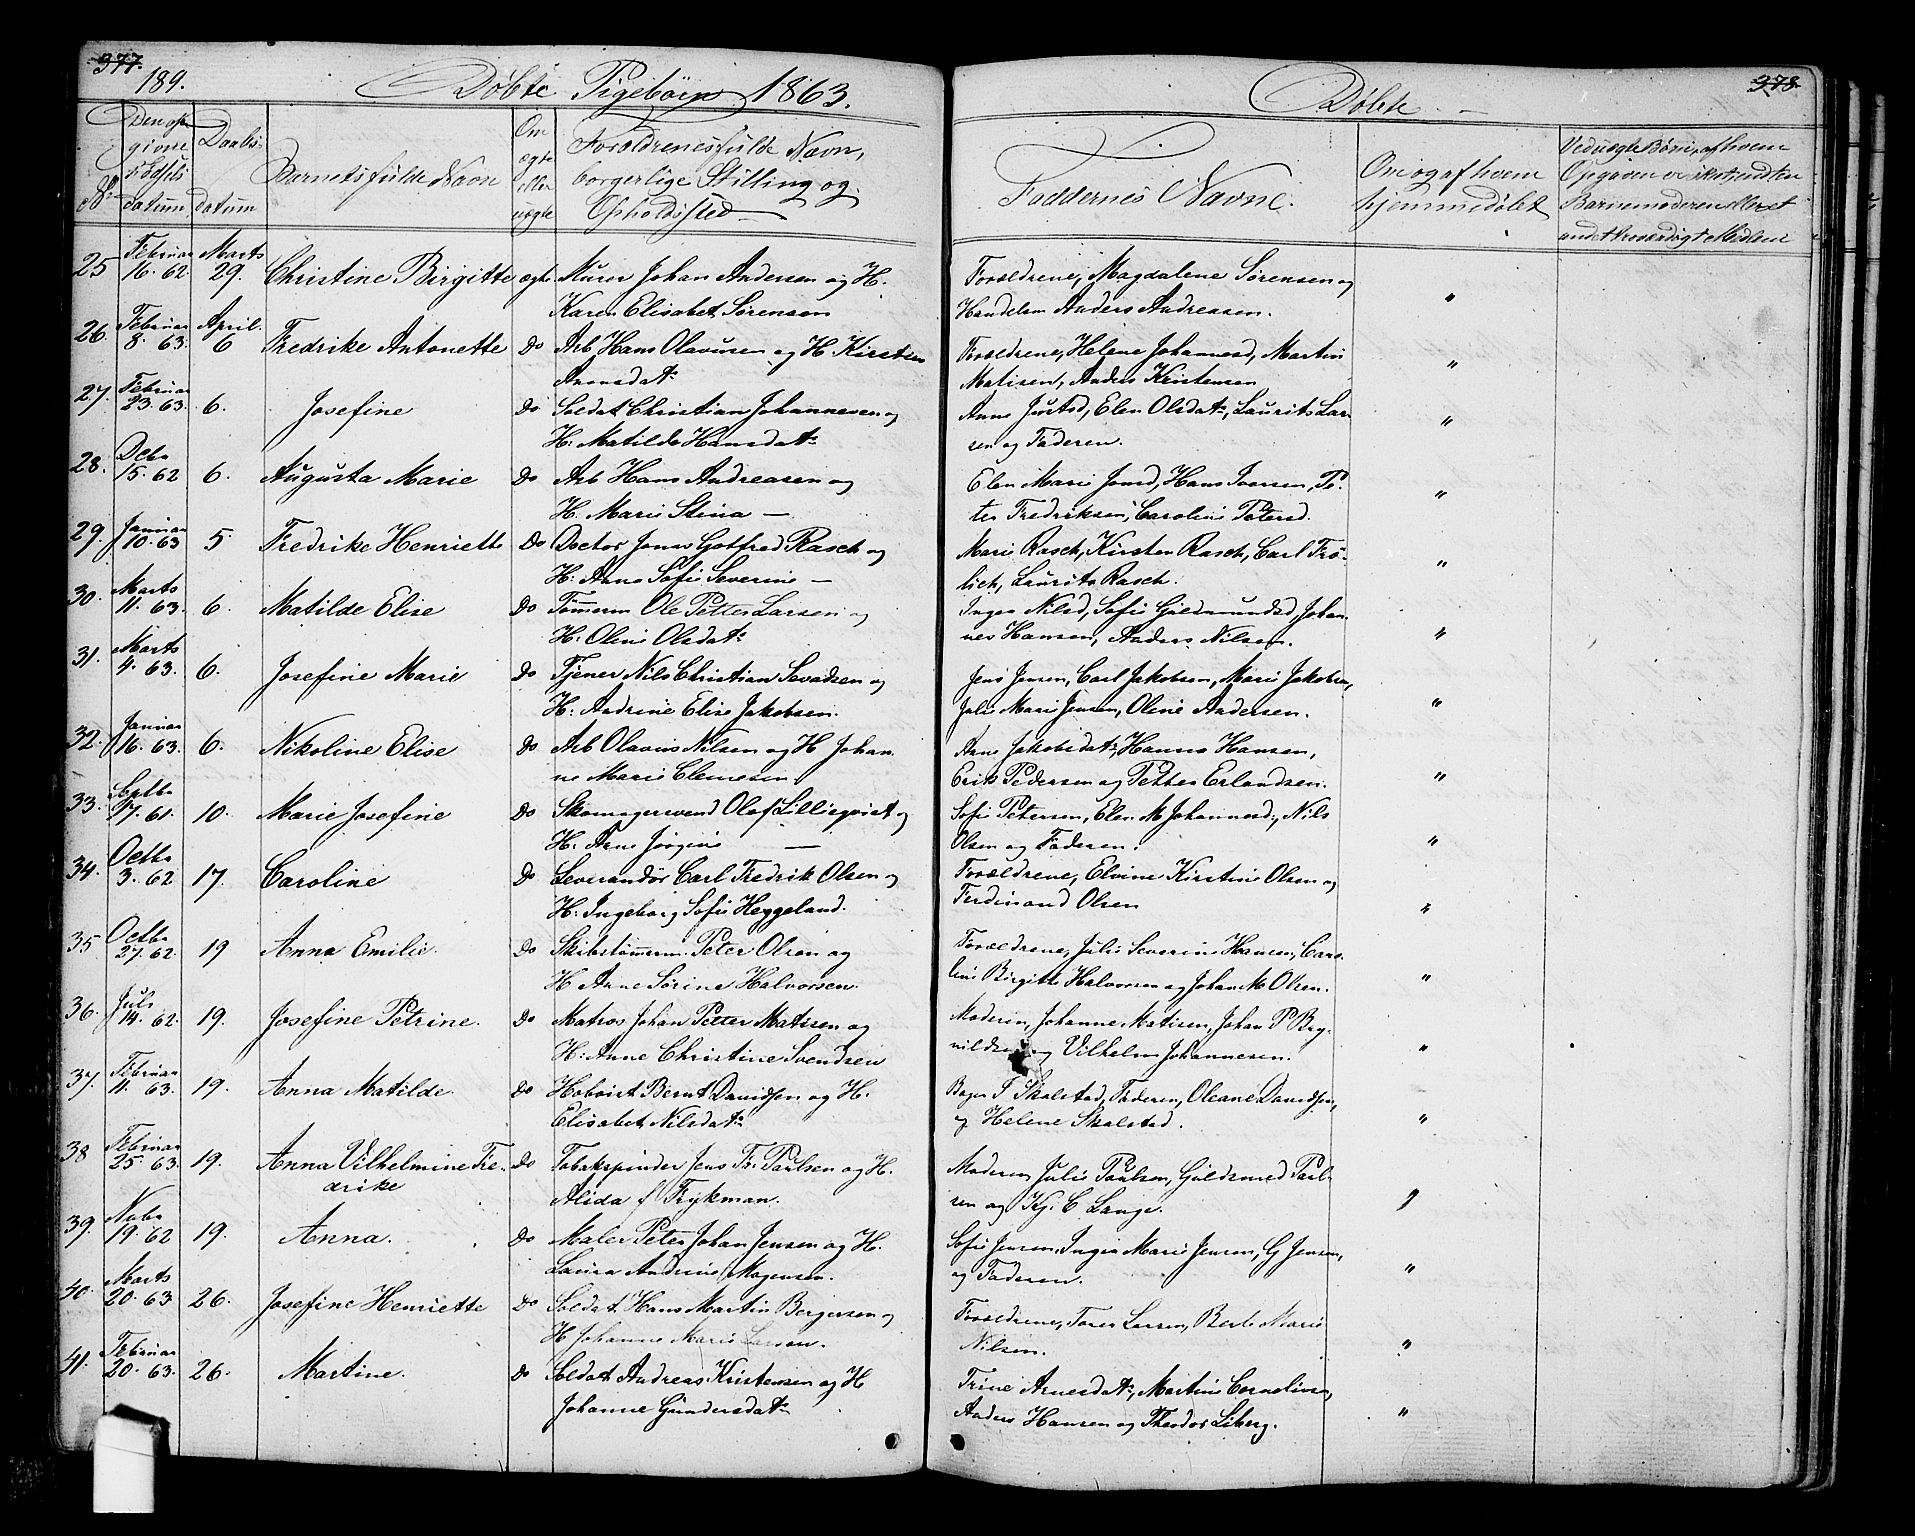 377.
189.
Døbte Pigebørn 1863.
No
Den opgivne Fødselsdatum
Daabsdatum
Barnets fulde Navn
Om ægte eller uægte
Forældrenes fulde Navn,
borgerlige Stilling og
Opholdssted
25 Februar 16. 62 Marts 29. Christine Birgitte ægte Murer Johan Andersen og H.
Karen Elisabet Sørensen
26. Februar 8. 63. April 6 Fredrike Antonette Do Arb Hans Olavusen og H. Kirstine
Aronsdatr
27. Februar 23. 63. 6. Josefine Do Soldat Christian Johannesen og
H: Matilde Hansdatr
28. Decbr 15. 62 6. Augusta Marie Do Arb Hans Andreasen og
H. Marie Stina —
29. Januar 10. 63 5. Fredrike Henriette Do Doctor Jonas Gotfred Rasch og
H: Anne Sofie Severine —
30. Marts 11. 63. 6. Matilde Elise Do Tømmerm Ole Petter Larsen og
H: Oline Olsdatr
31. Marts 4. 63. 6. Josefine Marie Do Tjener Nils Christian Sevadsen og
H: Andrine Elise Jakobsen.
32. Januar 16. 63. 6. Nikoline Elise Do Arb Olavus Nilsen og H Johan
ne Marie Clemesen
33. Septbr 17. 61. 10. Marie Josefine Do Skomagersvend Olof Lilliequist og
H: Anne Jørgine —
34. Octbr 3. 62 17. Caroline Do Leverandør Carl Fredrik Olsen og
H: Ingeborg Sofie Heggeland.
35 Octbr 27. 62. 19 Anna Emilie. Do Skibstømmerm. Peter Olsen og
H Anne Sørine Halvorsen.
36. Juli 14. 62. 19. Josefine Petrine. Do Matros Johan Petter Matisen og
H: Anne Christine Svendsen
37. Februar 11. 63. 19. Anna Matilde. Do Hoboist Bernt Davidsen og H.
Elisabet Nilsdatr
38 Februar 25. 63. 19. Anna Vilhelmine Fre- Do Tobakspinder Jens Fr. Paulsen og H.
drike Alida f Frykman.
39. Novbr 19. 62 19. Anna. Do Maler Peter Johan Jensen og H.
Laura Andrine Mogensen.
40. Marts 20. 63 26. Josefine Henriette Do Soldat Hans Martin Bergersen og
H Johanne Marie Larsen.
41. Februar 20. 63. 26. Martine. Do Soldat Andreas Kristensen og H
Johanne Gundersdatr
378.
Døbte
Faddernes Navne.
Om og af hvem
hjemmedøbt
Ved uægte Børn, af hvem
Opgaven er skeet, endten
Barnemoderen eller et
andet troværdigt Middel
Forældrene, Magdalene Sørensen og "
Handelsm Anders Andreasen.
Forældrene, Helene Johannesd, Martin "
Matisen, Anders Kristensen
Anne Justsd, Elen Olsdatr, Laurits Lar- "
sen og Faderen.
Elen Marie Jonsd, Hans Iversen, Pe- "
ter Fredriksen, Caroline Petersd.
Marie Rasch, Kirsten Rasch, Carl Frø- "
lich, Laurits Rasch.
Inger Nilsd, Sofie Guldmundsd, Johan-
nes Hansen, Anders Nilsen. "
Jens Jensen, Carl Jakobsen, Marie Jakobsen,
Julie Marie Jensen, Oline Andersen. "
Anne Jakobsdatr, Hanna Hansen,
Erik Pedersen og Petter Erlandsen. "
Sofie Petersen, Elen M Johannesd, Nils
Olsen og Faderen. "
Forældrene, Elvine Kirstine Olsen og
Ferdinand Olsen "
Forældrene, Julie Severine Hansen, Caro-
line Birgitte Halvorsen og Johan M Olsen. "
Moderen, Johanne Matisen, Johan P Bry-
nildsen og Vilhelm Johannesen. "
Bager P Skolstad, Faderen, Oleane Davidsen,
og Helene Skolstad. "
Moderen Julie Paulsen, Guldsmed Paul-
sen og Kj. C Lange. "
Sofie Jensen, Inger Marie Jensen, G Jensen,
og Faderen. "
Forældrene, Tarer Larsen, Berte Marie
Nilsen. "
Trine Arnesdatr, Martin Cornelius,
Anders Hansen og Theodor Liberg. "